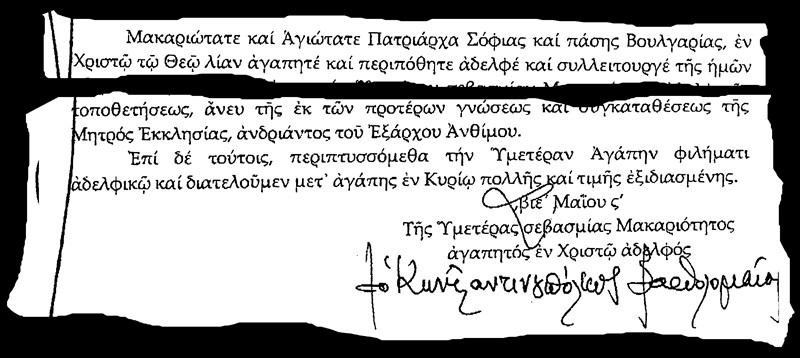 Μακαριώτατε καί Ἁγιώτατε Πατριάρχα Σόφιας καί πάσης Βουλγαρίας, ἐν
Χριστῷ τῷ Θεῷ λίαν ἀγαπητέ καί περιπόθητε ἀδελφέ καί συλλειτουργέ τῆς ἡμῶν
τοποθετήσεως, ἄνευ τῆς ἐκ τῶν προτέρων γνώσεως καί συγκαταθέσεως τῆς
Μητρός Ἐκκλησίας, ἀνδριάντος τοῦ Ἐξάρχου Ἀνθίμου.
Ἐπί δέ τούτοις, περιπτυσσόμεθα τήν Ὑμετέραν Ἀγάπην φιλήματι
ἀδελφικῷ καί διατελοῦμεν μετ’ ἀγάπης ἐν Κυρίῳ πολλῆς καί τιμῆς ἐξιδιασμένης.
͵βιε’ Μαΐου ς’
Τῆς Ὑμετέρας σεβασμίας Μακαριότητος
ἀγαπητός ἐν Χριστῷ ἀδελφός